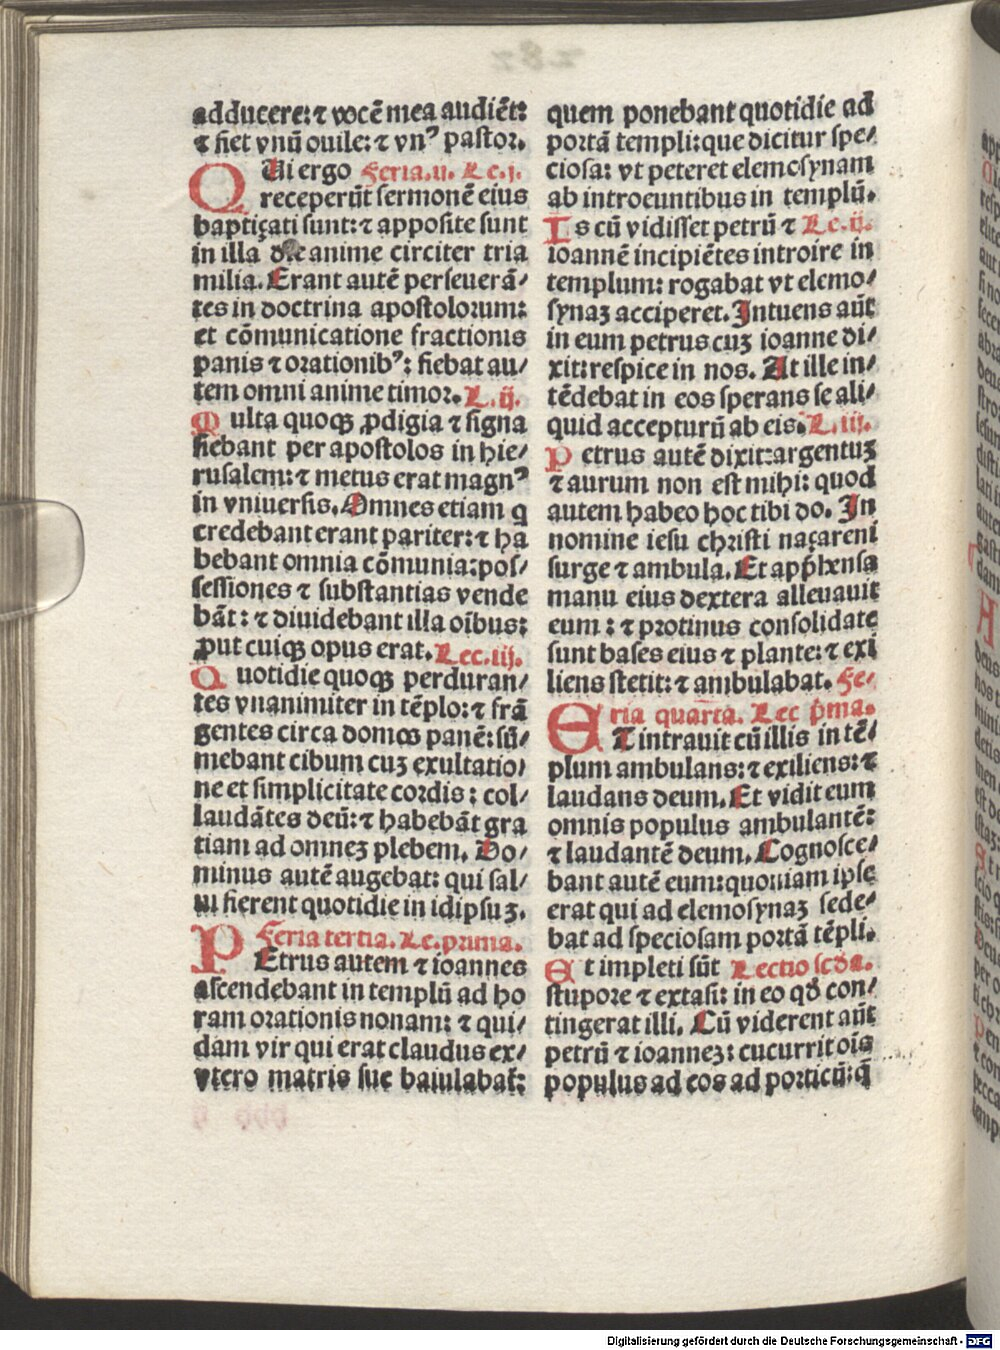 adducere: ⁊ vocē mea audiēt:
⁊ fiet vnū ouile: ⁊ vnꝰ pastor.
QUi ergo Feria.ii. Lc.j.
receperūt sermonē eius
baptiçati sunt: ⁊ apposite sunt
in illa die anime circiter tria
milia. Erant autē perseuerā/
tes in doctrina apostolorum:
et cōmunicatione fractionis
panis ⁊ orationibꝰ: fiebat au/
tem omni anime timor. L.ij.
Multa quoqꝫ ꝓdigia ⁊ signa
fiebant per apostolos in hie/
rusalem: ⁊ metus erat magnꝰ
in vniuersis. Omnes etiam q
credebant erant pariter: ⁊ ha
bebant omnia cōmunia: pos/
sessiones ⁊ substantias vende
bāt: ⁊ diuidebant illa oībus:
ꝓut cuiqꝫ opus erat. Lec.iij.
Quotidie quoqꝫ perduran/
tes vnanimiter in tēplo: ⁊ frā
gentes circa domos panē: sū/
mebant cibum cuꝫ exultatio/
ne et simplicitate cordis: col/
laudātes deū: ⁊ habebāt gra
tiam ad omneꝫ plebem. Do/
minus autē augebat: qui sal/
ui fierent quotidie in idipsuꝫ.
Feria tertia. Lc. prima.
PEtrus autem ⁊ ioannes
ascendebant in templū ad ho
ram orationis nonam: ⁊ qui/
dam vir qui erat claudus ex/
vtero matris sue baiulabat̄:
quem ponebant quotidie ad
portā templi: que dicitur spe/
ciosa: vt peteret elemosynam
ab introeuntibus in templū.
Is cū vidisset petrū ⁊ Lc.ij.
ioannē incipiētes introire in
templum: rogabat vt elemo/
synaꝫ acciperet. Intuens aūt
in eum petrus cuꝫ ioanne di/
xit: respice in nos. At ille in/
tēdebat in eos sperans se ali/
quid accepturū ab eis. L.iij.
Petrus autē dixit: argentuꝫ
⁊ aurum non est mihi: quod
autem habeo hoc tibi do. In
nomine iesu christi naçareni
surge ⁊ ambula. Et app̄hensa
manu eius dextera alleuauit
eum: ⁊ protinus consolidate
sunt bases eius ⁊ plante: ⁊ exi
liens stetit: ⁊ ambulabat. Fe/
ria quarta. Lec p̄ma.
ET intrauit cū illis in tē/
plum ambulans: ⁊ exiliens: ⁊
laudans deum. Et vidit eum
omnis populus ambulantē:
⁊ laudantē deum. Cognosce/
bant autē eum: quoniam ipse
erat qui ad elemosynaꝫ sede/
bat ad speciosam portā tēpli.
Et impleti sūt Lectio scda.
stupore ⁊ extasi: in eo qd̄ con/
tingerat illi. Cū viderent aūt
petrū ⁊ ioanneꝫ: cucurrit oīs
populus ad eos ad porticū: q̄
Digitalisierung gefördert durch die Deutsche Forschungsgemeinschaft - DFG